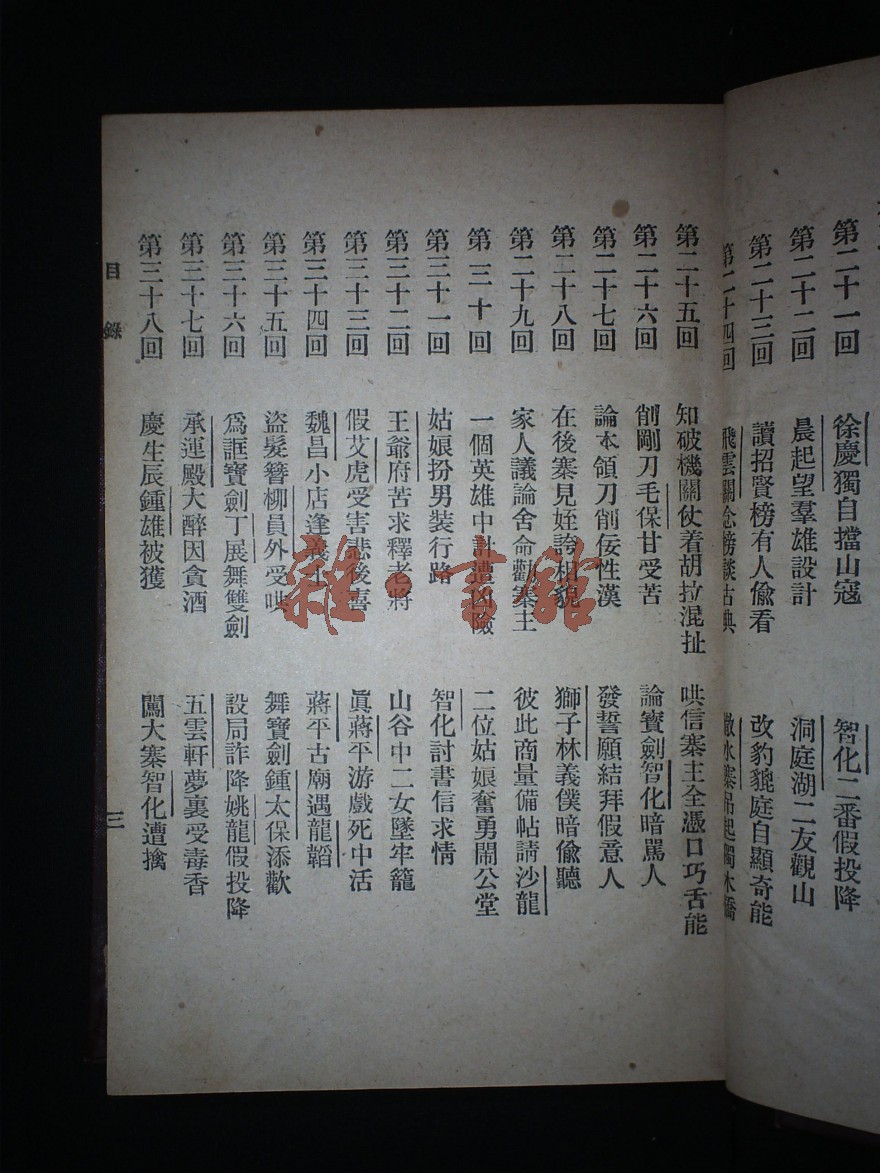 第二十一回 徐慶獨自擋山寇 智化二番假投降
第二十二回 晨起望羣雄設計 洞庭湖二友觀山
第二十三回 讀招賢榜有人偸看 改豹貔庭自顯奇能
第二十四回 飛雲關念榜談古典 水寨吊起獨木橋
第二十五回 知破機關仗着胡拉混扯 哄信寨主全憑口巧舌能
第二十六回 削剛刀毛保甘受苦 論寶劍智化暗罵人
第二十七回 論本領刀削佞性漢 發誓願結拜假意人
第二十八回 在後寨見姪誇相貌 獅子林義僕暗偸聽
第二十九回 家人議論舍命勸寨主 彼此商量備帖請沙龍
第三十回 一個英雄中計遭凶險 二位姑娘奮勇鬧公堂
第三十一回 姑娘扮男裝行路 智化討書信求情
第三十二回 王爺府苦求釋老將 山谷中二女墜牢籠
第三十三回 假艾虎受害悲後喜 眞蔣平游戲死中活
第三十四回 魏昌小店逢義士 蔣平古廟遇龍韜
第三十五回 盜髮簪柳員外受哄 舞寶劍鍾太保添歡
第三十六回 爲誆寶劍丁展舞雙劍 設局詐降姚龍假投降
第三十七回 承運殿大醉因貪酒 五雲軒夢裏受毒香
第三十八回 慶生辰鍾雄被獲 闖大寨智化遭擒
目錄
三
雜·書館